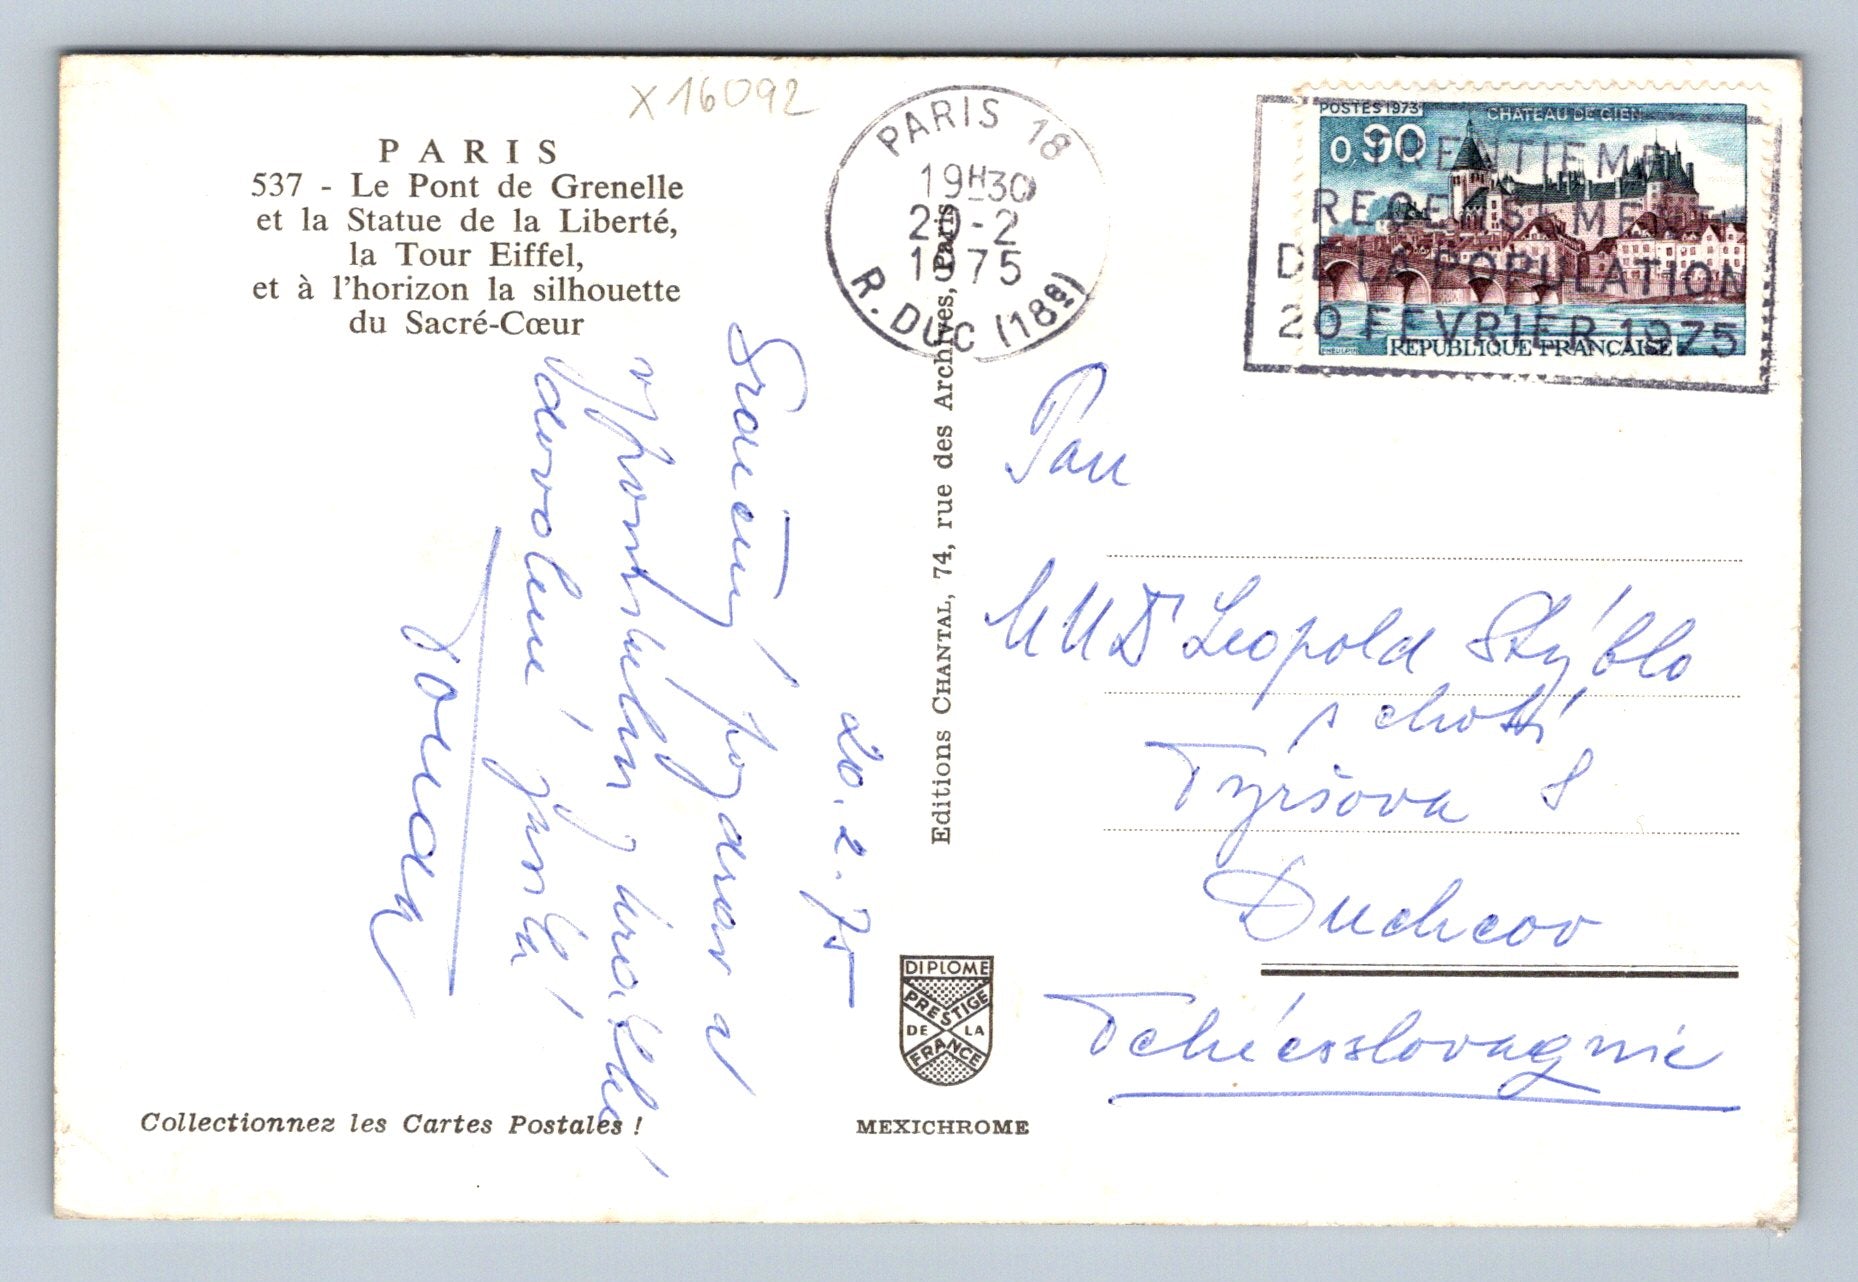 X 16092
PARIS
537 - Le Pont de Grenelle
et la Statue de la Liberté,
la Tour Eiffel,
et à l'horizon la silhouette
du Sacré-Cœur
PARIS 18
19H30
20-2
1975
R. DUC (18e)
POSTES 1973
CHATEAU DE GIEN
0,90
REPUBLIQUE FRANCAISE
TRENTIEME
RECENSEMENT
DE LA POPULATION
20 FEVRIER 1975
20.2.75
Srdečný pozdrav a
vzpomínku z krátké
dovolené
Editions CHANTAL, 74, rue des Archives, Paris
Pan
MUDr Leopold Stýblo
s chotí
Tyršova 8
Duchcov
Tchécoslovaquie
DIPLOME
PRESTIGE
DE LA
FRANCE
Collectionnez les Cartes Postales !
MEXICHROME